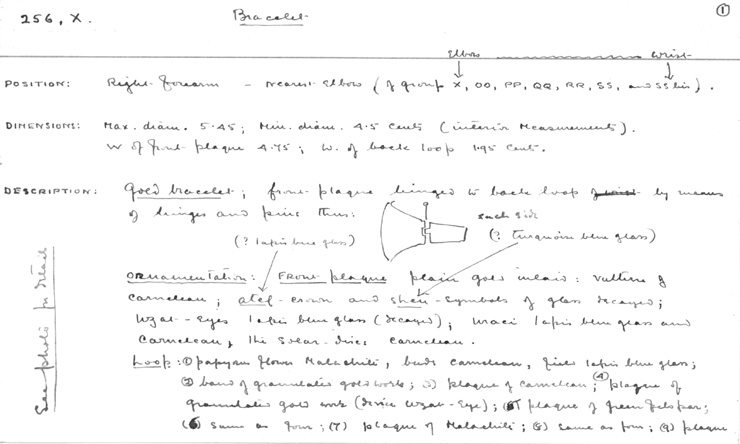 256, X.
Bracelet
①
Elbow Wrist
POSITION: Right forearm - nearest elbow (of group X, OO, PP, QQ, RR, SS, and SS bis).
DIMENSIONS: Max. diam. 5.45; Min. diam. 4.5 cents (interior measurements).
W of front plaque 4.75; W. of back loop 1.95 cent.
DESCRIPTION: Gold bracelet; front plaque hinged to back loop by means
of hinges and pins thus: each side
(? lapis blue glass) (? Turquoise blue glass)
ORNAMENTATION: FRONT plaque plain gold inlaid: Vulture of
carnelian; atef-crown and shen-symbols of glass decayed;
Uzat-Eyes lapis blue glass (decayed); uraei lapis blue glass and
carnelian, the solar-disc carnelian.
Loop: ① papyrus flower Malachite, buds carnelian, field lapis blue glass;
② band of granulated gold work; 3) plaque of carnelian; ④ plaque of
granulated gold work (device Uzat-Eye); 5) plaque of green felspar;
(6) same as four; (7) plaque of Malachite; (8) same as four; (9) plaque
See photo for detail